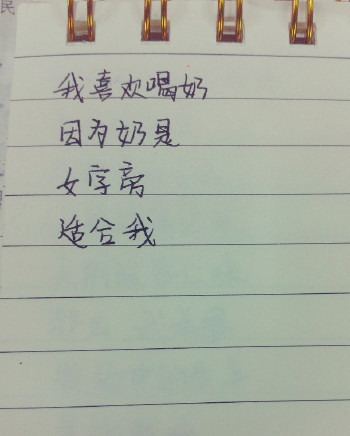 民
我喜欢喝奶
因为奶是
女字旁
适合我